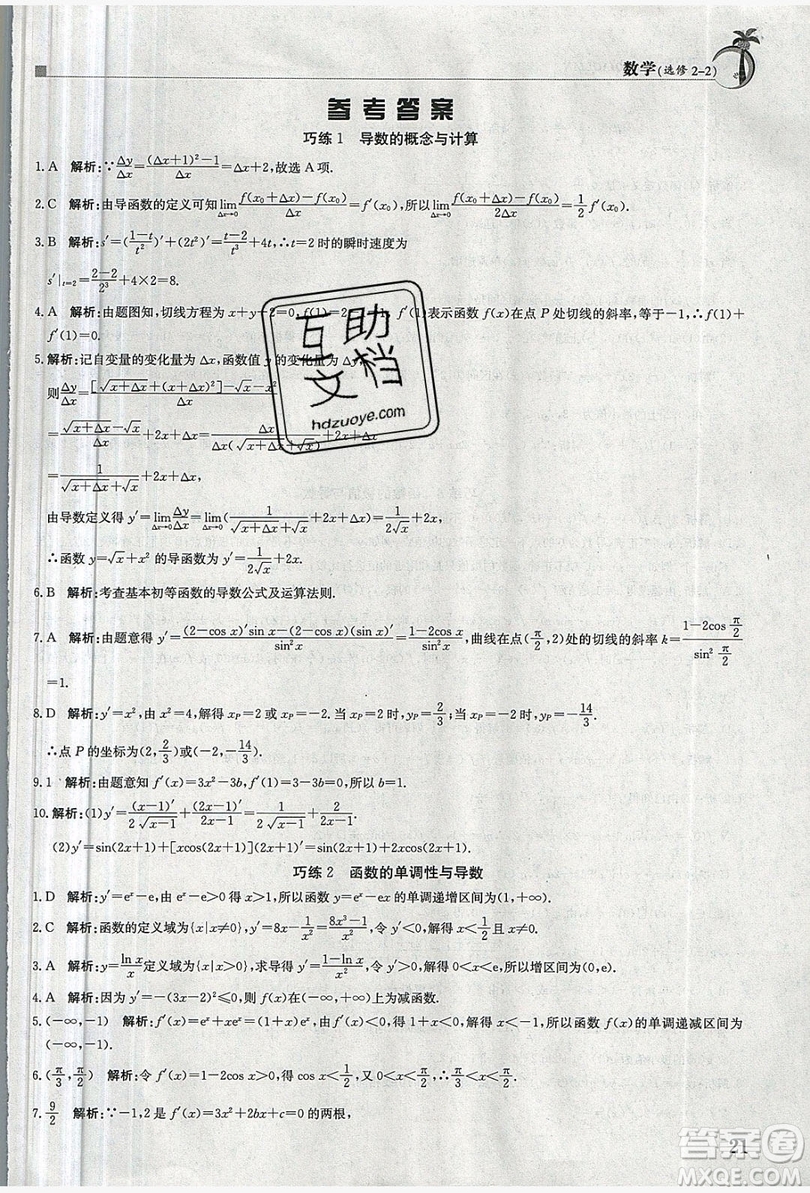 数学(选修 2-2)
参考答案
巧练 1 导数的概念与计算
1. A 解析:∵Δy/Δx=((Δx+1)²-1)/Δx=Δx+2,故选 A 项.
2. C 解析:由导函数的定义可知lim(Δx→0) (f(x₀+Δx)-f(x₀))/Δx=f′(x₀),所以lim(Δx→0) (f(x₀+Δx)-f(x₀))/2Δx=1/2 f′(x₀).
3. B 解析:s′=((1-t)/t²)′+(2t²)′=(t-2)/t³+4t,∴t=2 时的瞬时速度为
s′|t=2=(2-2)/2³+4×2=8.
4. A 解析:由题图知,切线方程为 x+y-2=0,f(1)=2-1=1,f′(1)表示函数 f(x)在点 P 处切线的斜率,等于-1,∴f(1)+
f′(1)=0.
5. 解析:记自变量的变化量为 Δx,函数值 y 的变化量为 Δy,
则Δy/Δx=([√(x+Δx)+(x+Δx)²]-
=(√(x+Δx)-√x)/Δx+2x+Δx=Δx/(Δx(√(x+Δx)+√x))+2x+Δx
=1/(√(x+Δx)+√x)+2x+Δx,
由导数定义得 y′=lim(Δx→0) Δy/Δx=lim(Δx→0) (1/(√(x+Δx)+√x)+2x+Δx)=1/(2√x)+2x,
∴函数 y=√x+x² 的导函数 y′=1/(2√x)+2x.
6. B 解析:考查基本初等函数的导数公式及运算法则.
7. A 解析:由题意得 y′=((2-cos x)′sin x-(2-cos x)(sin x)′)/sin²x=(1-2cos x)/sin²x,曲线在点(π/2,2)处的切线的斜率 k=(1-2cos π/2)/(sin² π/2)
=1.
8. D 解析:y′=x²,由 x²=4,解得 xP=2 或 xP=-2. 当 xP=2 时,yP=2/3;当 xP=-2 时,yP=-14/3.
∴点 P 的坐标为(2,2/3)或(-2,-14/3).
9. 1 解析:由题意知 f′(x)=3x²-3b,f′(1)=3-3b=0,所以 b=1.
10. 解析:(1)y′=(x-1)′/(2√(x-1))+(2x-1)′/(2x-1)=1/(2√(x-1))+2/(2x-1).
(2)y′=sin(2x+1)+[xcos(2x+1)](2x+1)′=sin(2x+1)+2xcos(2x+1).
巧练 2 函数的单调性与导数
1. D 解析:y′=eˣ-e,eˣ-e>0 得 x>1,所以函数 y=eˣ-ex 的单调递增区间为(1,+∞).
2. C 解析:函数的定义域为{x|x≠0},y′=8x-1/x²=(8x³-1)/x²,令 y′<0,解得 x<1/2且 x≠0.
3. A 解析:y=ln x/x的定义域为{x|x>0},求导得 y′=(1-ln x)/x²,令 y′>0,解得 0<x<e,所以单调递增区间为(0,e).
4. A 解析:因为 y′=-(3x-2)²≤0,所以函数在(-∞,+∞)上为减函数.
5. (-∞,-1) 解析:f′(x)=eˣ+xeˣ=eˣ(1+x),由 f′(x)<0,得 x<-1,所以函数 f(x)的单调递减区间为
(-∞,-1).
6. (π/3,π/2) 解析:令 f′(x)=1-2cos x>0,则 cos x<1/2,又 x∈(0,π/2),解得π/3<x<π/2.
7. 9/2 解析:∵-1,2 是 f′(x)=3x²+2bx+c=0 的两根,
21
互助
文档
hdzuoye.com
答案圈
MXQE.COM